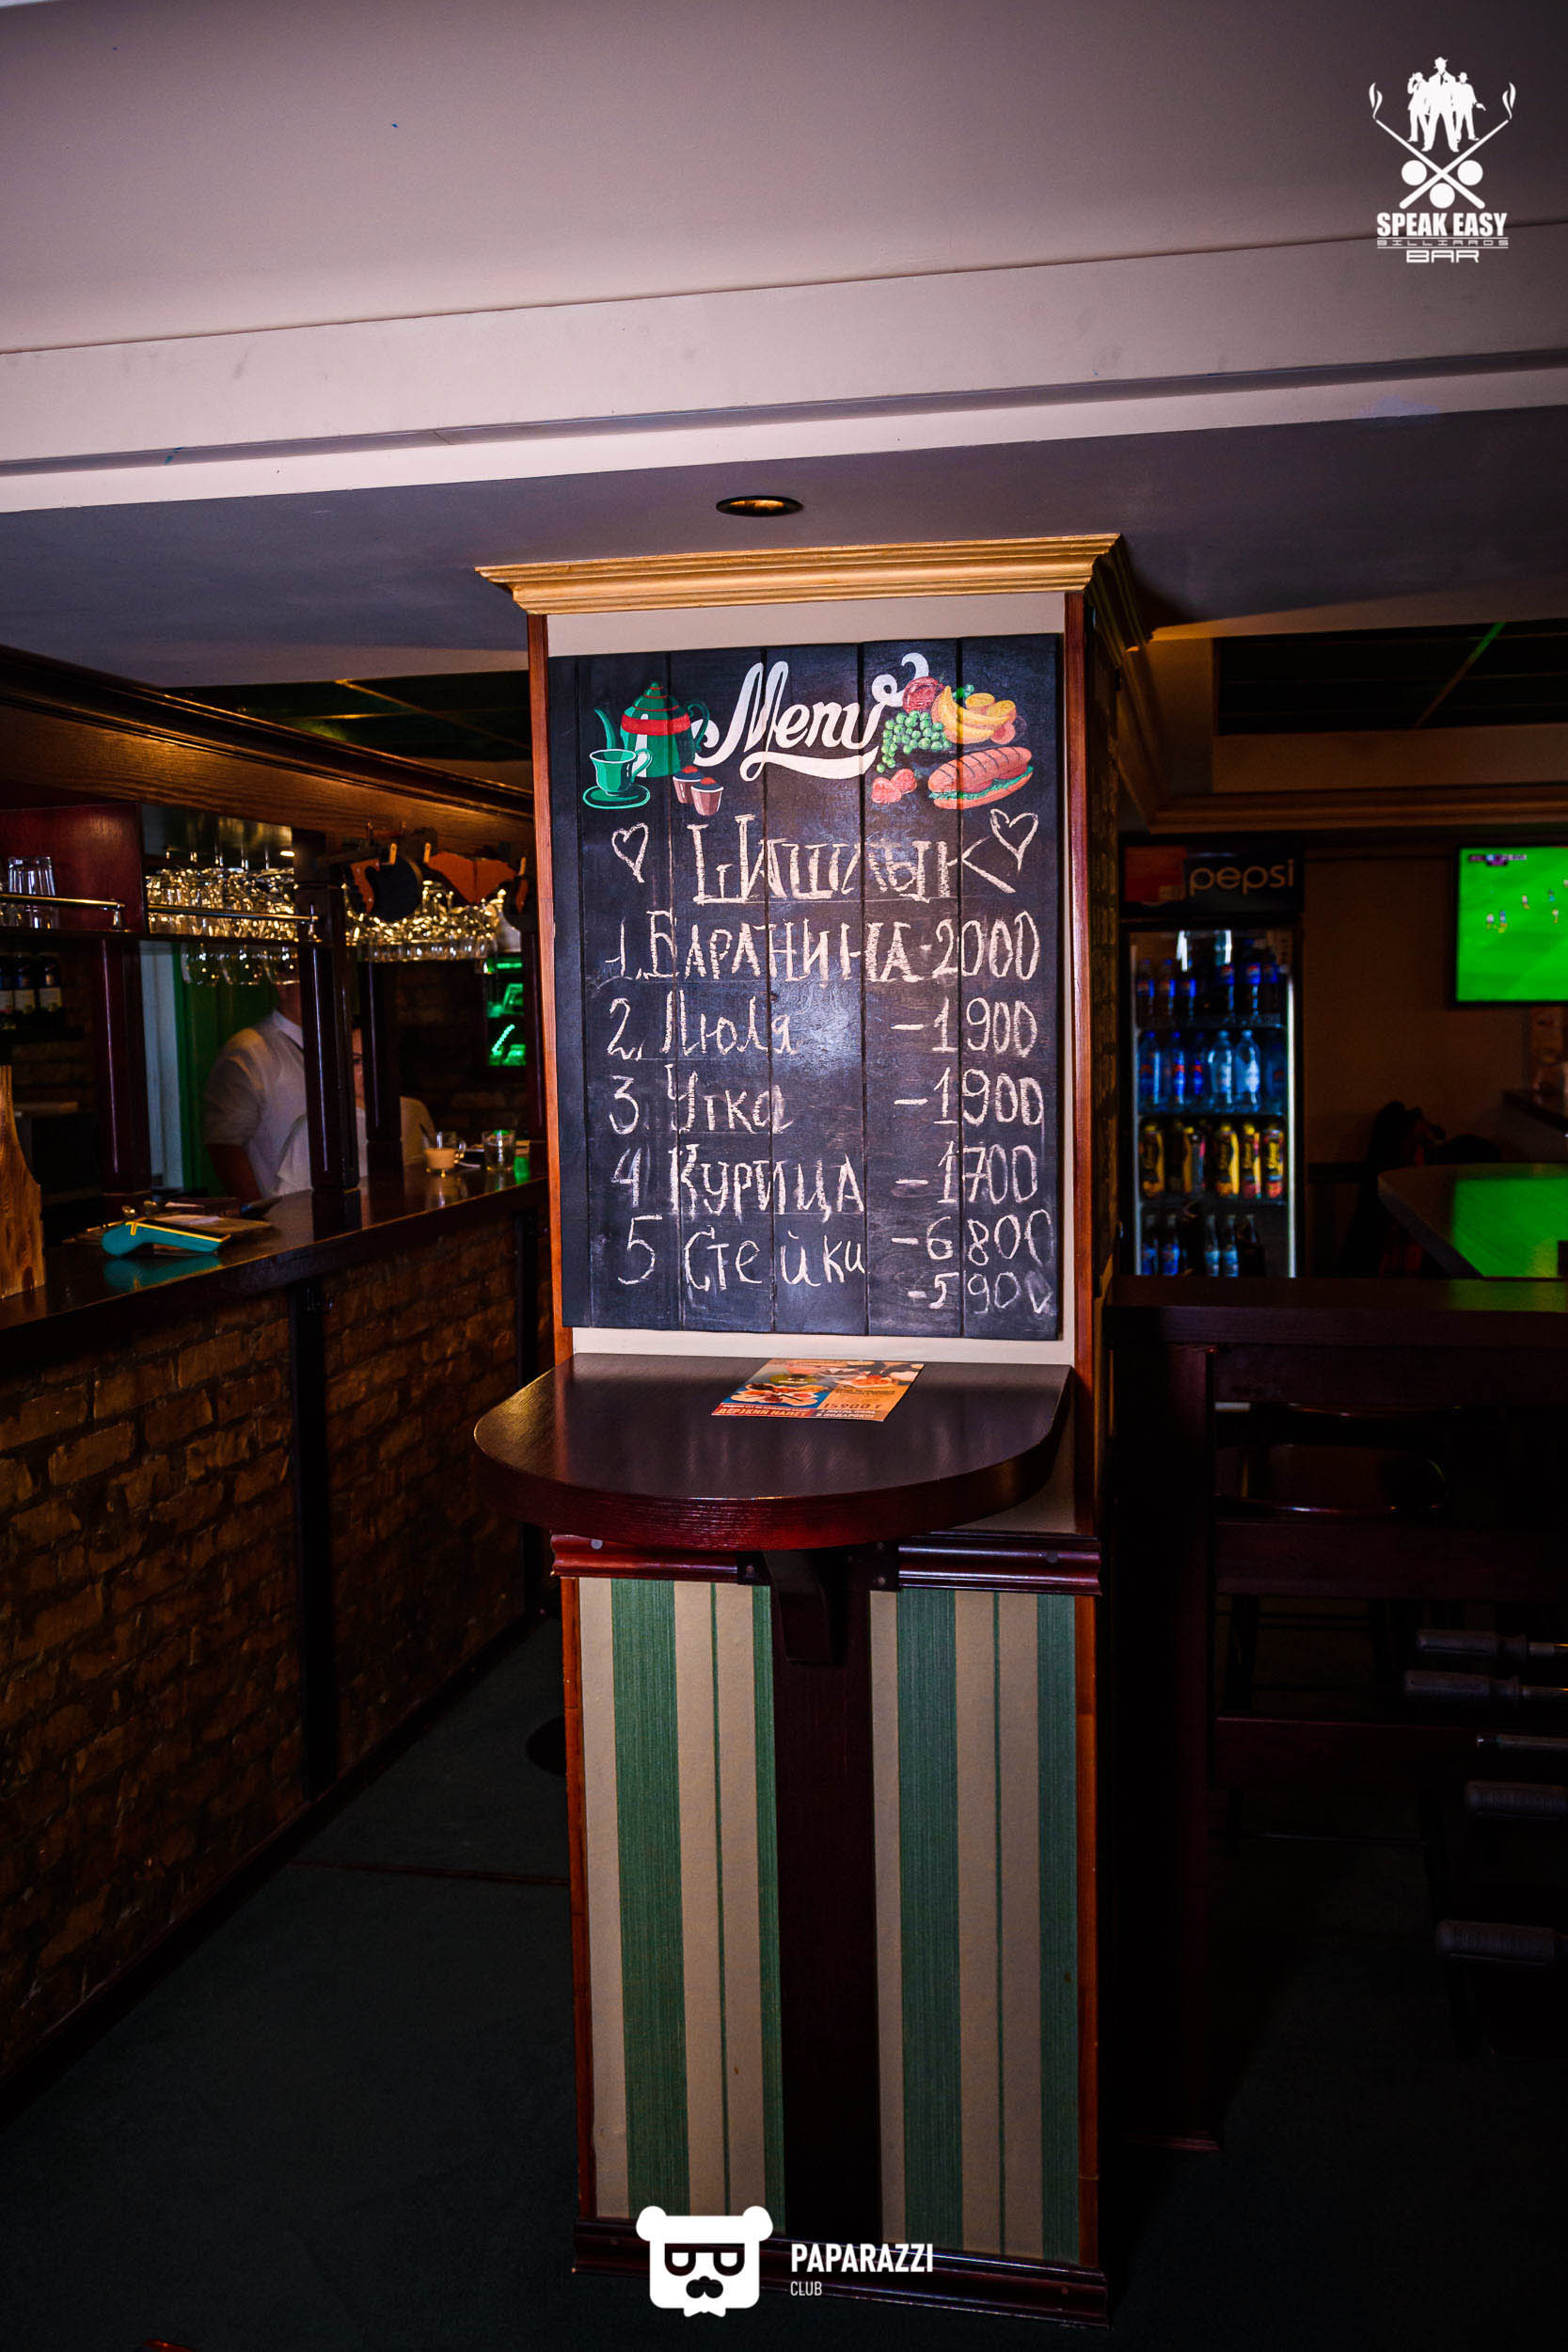 SPEAK EASY
BILLIARDS
BAR
Menu
ШАШЛЫК
1. БАРАНИНА - 2000
2. Люля - 1900
3. Утка - 1900
4 КУРИЦА - 1700
5 Стейки - 6800
- 5900
pepsi
15900 т
ДЕРЗКИЙ НАЛЕТ
В ПОДАРОК!!!
PAPARAZZI
CLUB